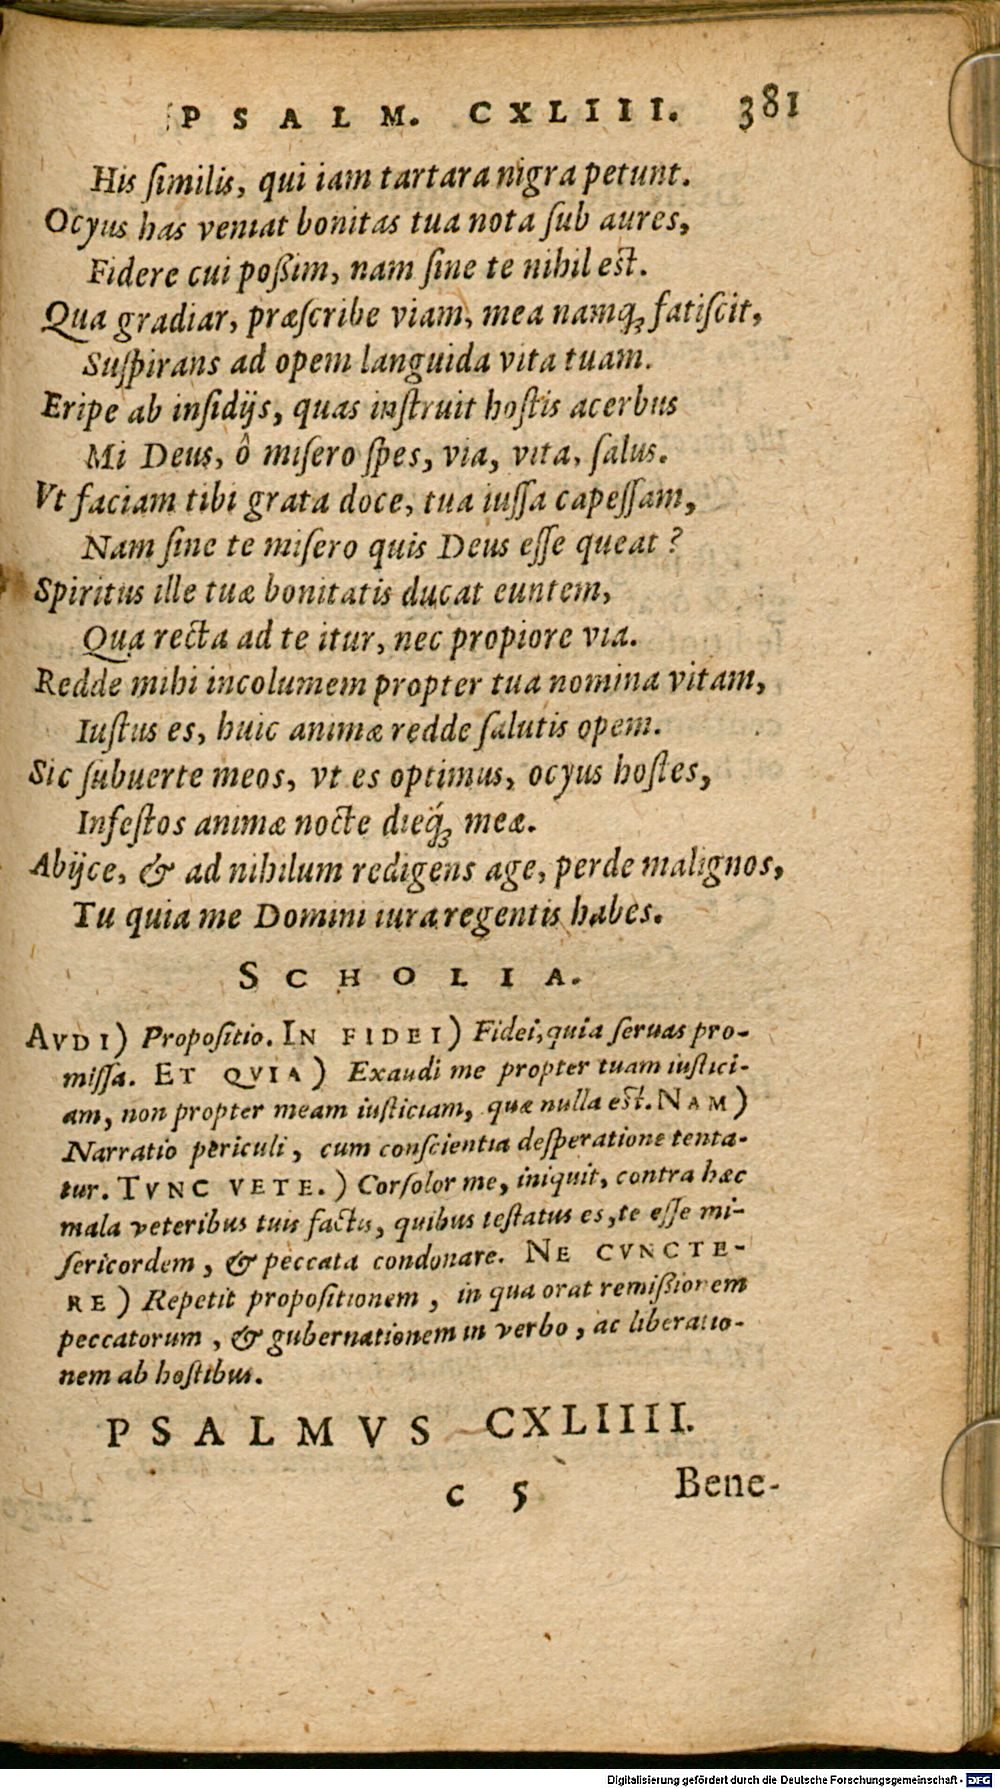 PSALM. CXLIII. 381
His ſimilis, qui iam tartara nigra petunt.
Ocyus has veniat bonitas tua nota ſub aures,
Fidere cui poßim, nam ſine te nihil eſt.
Qua gradiar, præſcribe viam, mea namq; fatiſcit,
Suſpirans ad opem languida vita tuam.
Eripe ab inſidijs, quas inſtruit hoſtis acerbus
Mi Deus, ô miſero ſpes, via, vita, ſalus.
Vt faciam tibi grata doce, tua iuſſa capeſſam,
Nam ſine te miſero quis Deus eſſe queat ?
Spiritus ille tuæ bonitatis ducat euntem,
Qua recta ad te itur, nec propiore via.
Redde mihi incolumem propter tua nomina vitam,
Iuſtus es, huic animæ redde ſalutis opem.
Sic ſubuerte meos, vt es optimus, ocyus hoſtes,
Infeſtos animæ nocte dieq́; meæ.
Abijce, & ad nihilum redigens age, perde malignos,
Tu quia me Domini iura regentis habes.
SCHOLIA.
AVDI) Propoſitio. IN FIDEI) Fidei, quia ſeruas pro-
miſſa. ET QVIA) Exaudi me propter tuam iuſtici-
am, non propter meam iuſticiam, quæ nulla eſt. NAM)
Narratio periculi, cum conſcientia deſperatione tenta-
tur. TVNC VETE.) Corſolor me, iniquit, contra hæc
mala veteribus tuis factis, quibus teſtatus es, te eſſe mi-
ſericordem, & peccata condonare. NE CVNCTE-
RE) Repetit propoſitionem, in qua orat remißionem
peccatorum, & gubernationem in verbo, ac liberatio-
nem ab hoſtibus.
PSALMVS CXLIIII.
c 5 Bene-
Digitalisierung gefördert durch die Deutsche Forschungsgemeinschaft - DFG